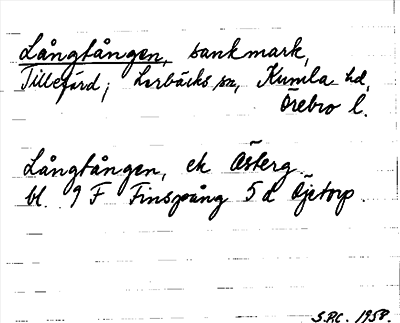 Långtången, sankmark,
Tillefärd; Lerbäcks sn, Kumla hd,
Örebro l.
Långtången, ek Österg.
bl. 9 F Finspång 5 d
S.P.C. 1958.